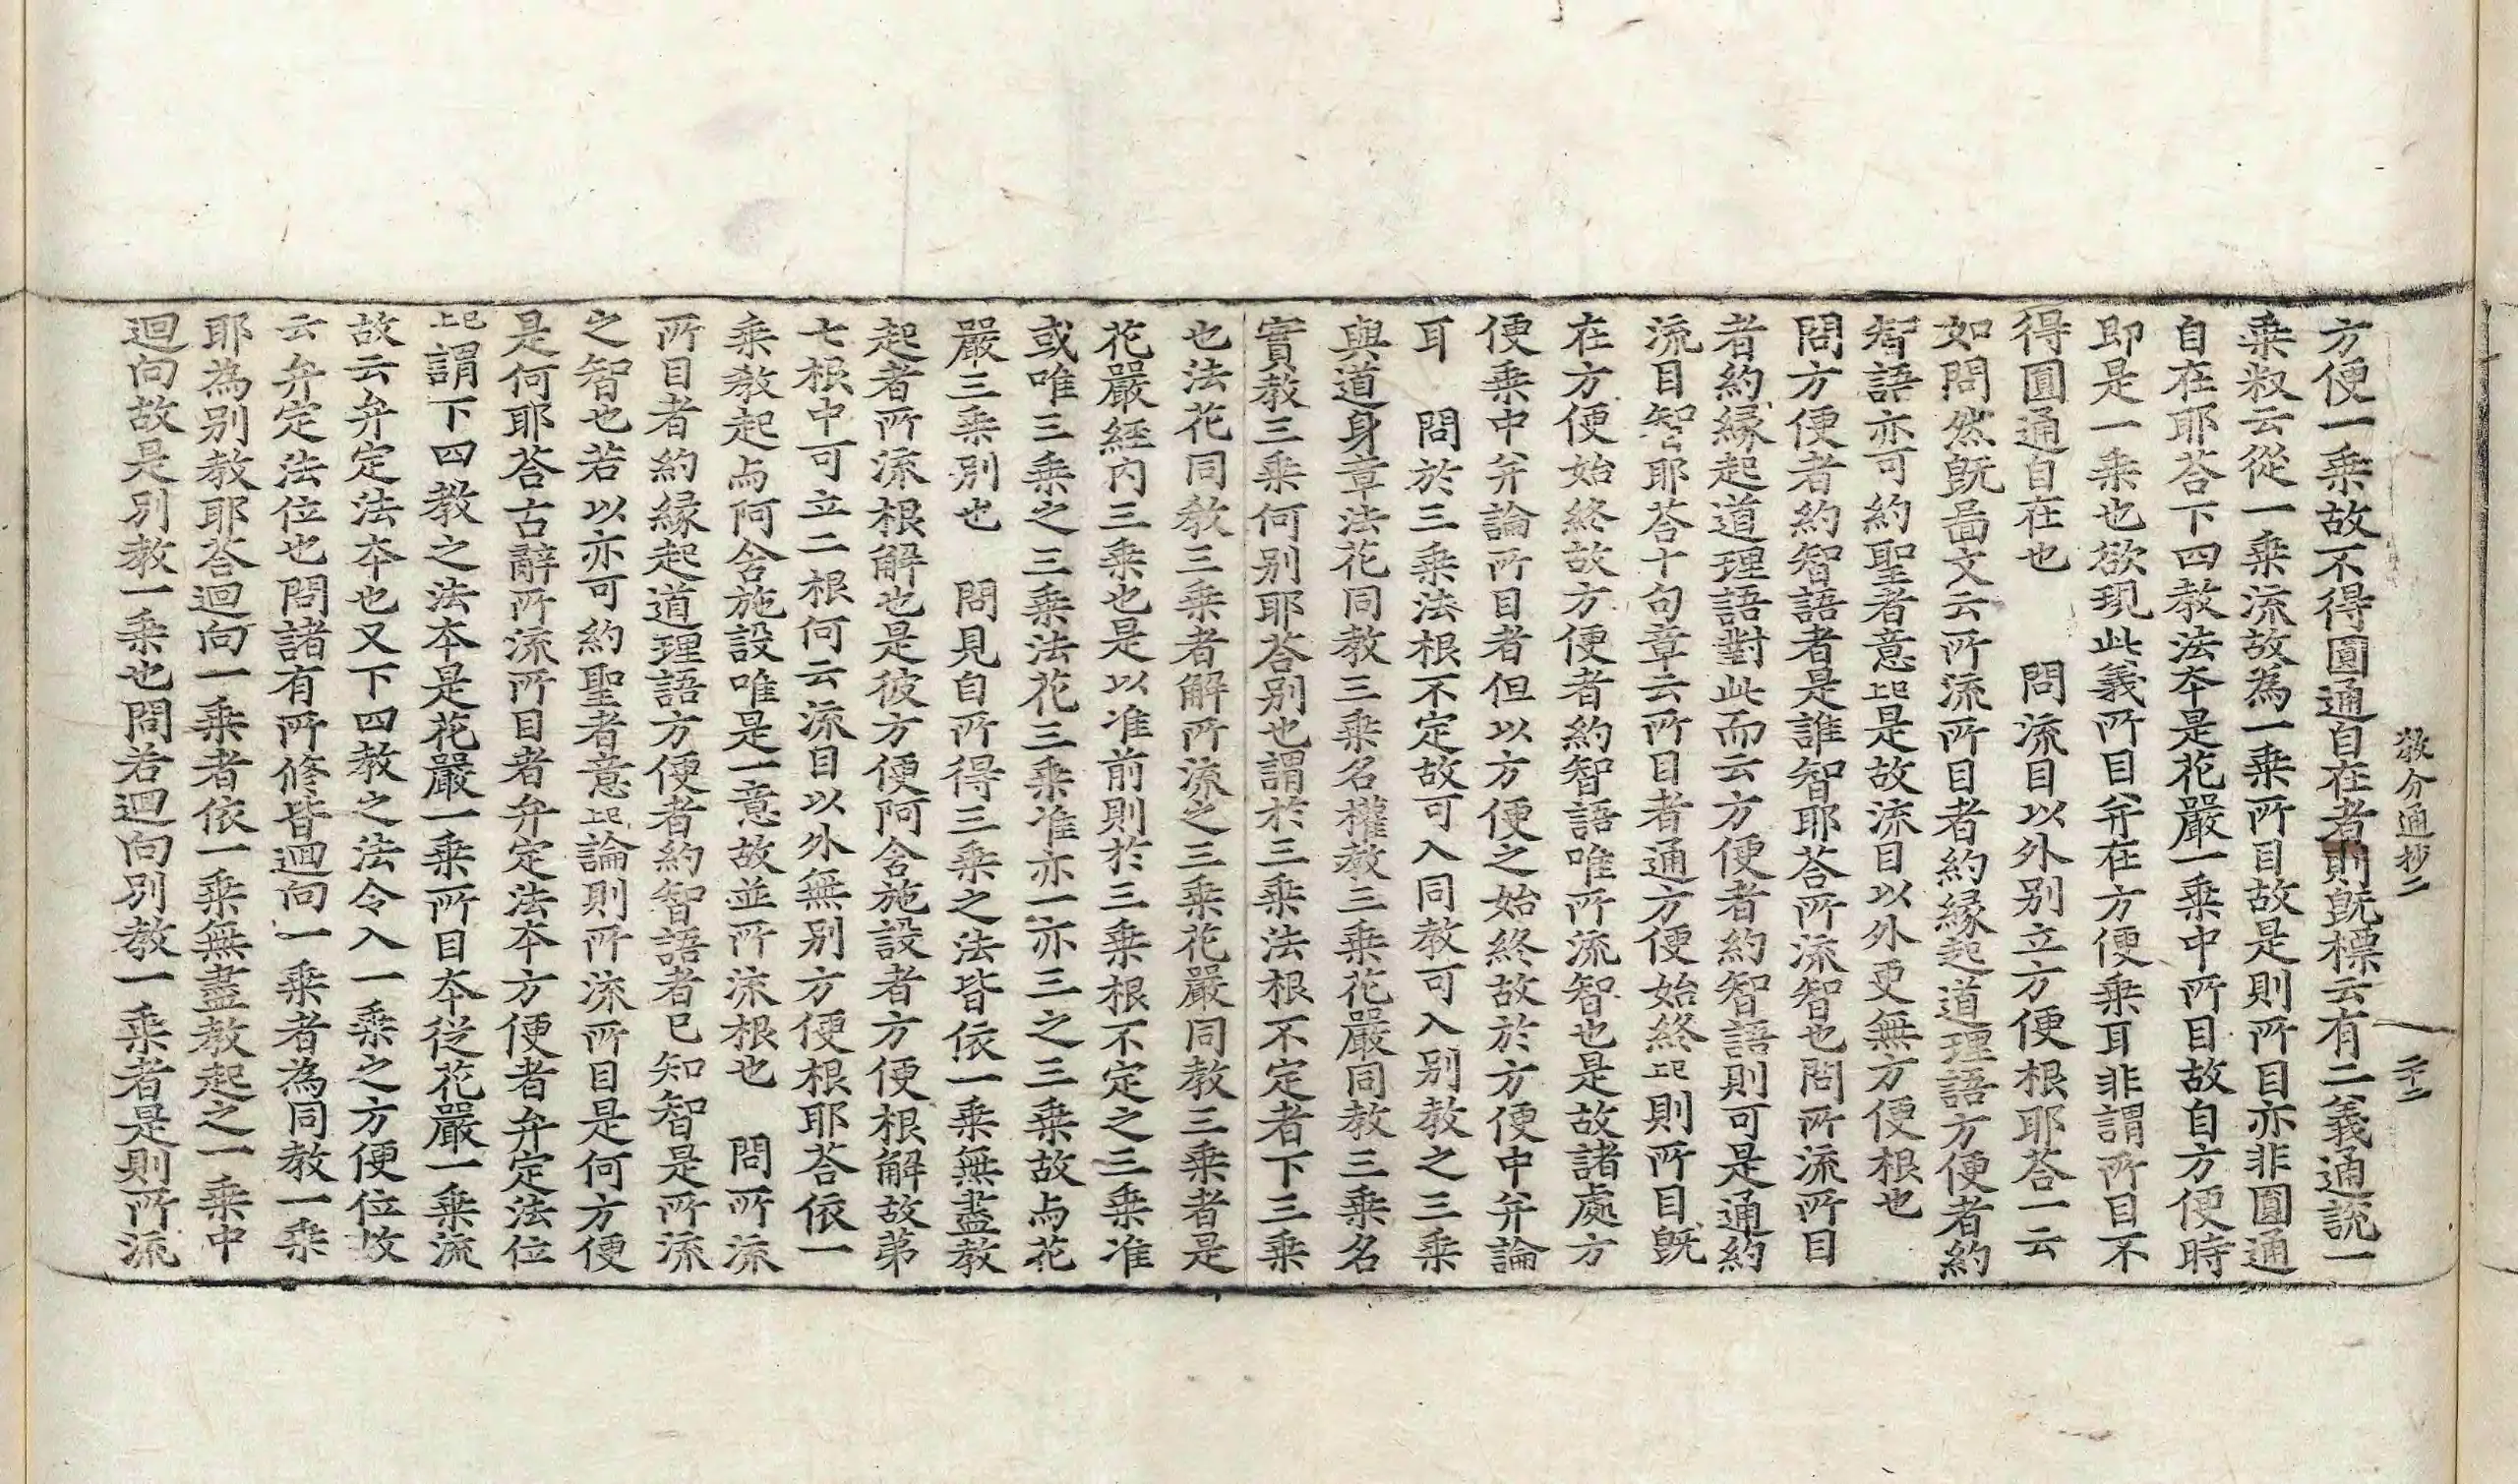 教分通抄二　二十二
方便一乗故不得圓通自在者則既標云有二義通説一
乗敎云從一乗流故為一乗所目故是則所目亦非圓通
自在耶荅下四教法夲是花嚴一乗中所目故自方便時
即是一乗也欲現此義所目弁在方便乗耳非謂所目不
得圓通自在也　問流目以外別立方便根耶荅一云
如問然既啚文云所流所目者約縁起道理語方便者約
智語亦可約聖者意上已是故流目以外更無方便根也
問方便者約智語者是誰智耶荅所流智也問所流所目
者約縁起道理語對此而云方便者約智語則可是通約
流目智耶荅十句章云所目者通方便始終上已則所目既
在方便始終故方便者約智語唯所流智也是故諸處方
便乗中弁論所目者但以方便之始終故於方便中弁論
耳　問於三乗法根不定故可入同教可入別教之三乗
與道身章法花同教三乗名權教三乗花嚴同教三乗名
實教三乗何別耶荅別也謂於三乗法根不定者下三乗
也法花同教三乗者解所流之三乗花嚴同教三乗者是
花嚴經內三乗也是以准前則於三乗根不定之三乗准
或唯三乗之三乗法花三乗准亦一亦三之三乗故与花
嚴三乗別也　問見自所得三乗之法皆依一乗無盡教
起者所流根解也是彼方便阿含施設者方便根解故苐
七根中可立二根何云流目以外無別方便根耶荅依一
乗教起与阿含施設唯是一意故並所流根也　問所流
所目者約縁起道理語方便者約智語者已知智是所流
之智也若以亦可約聖者意上已論則所流所目是何方便
是何耶荅古辭所流所目者弁定法夲方便者弁定法位
上已謂下四教之法夲是花嚴一乗所目夲從花嚴一乗流
故云弁定法夲也又下四教之法令入一乗之方便位故
云弁定法位也問諸有所修皆迴向一乗者為同教一乗
耶為別教耶荅迴向一乗者依一乗無盡教起之一乗中
迴向故是別教一乗也問若迴向別教一乗者是則所流